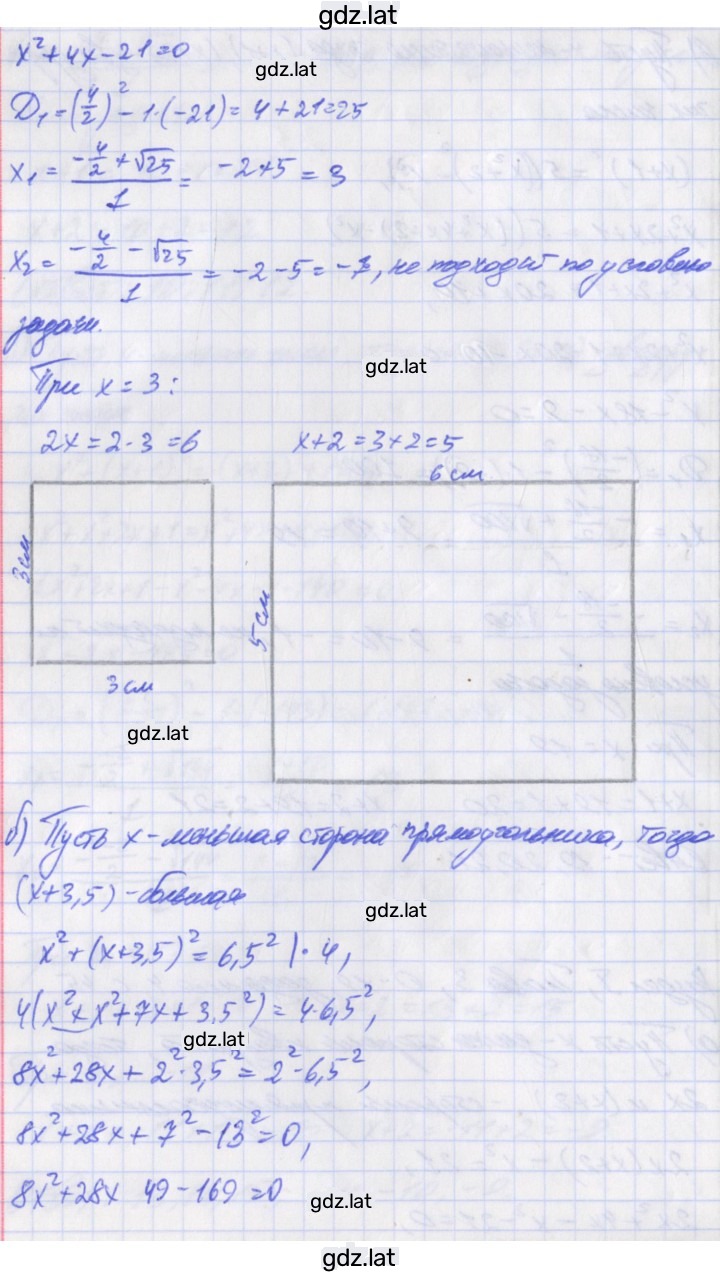 gdz.lat
x² + 4x - 21 = 0
gdz.lat
D₁ = (4/2)² - 1·(-21) = 4 + 21 = 25
x₁ = (-4/2 + √25)/1 = -2+5 = 3
x₂ = (-4/2 - √25)/1 = -2-5 = -7, не подходит по условию
задачи.
gdz.lat
При x = 3:
2x = 2·3 = 6 x+2 = 3+2 = 5
6 см
3 см
5 см
3 см
gdz.lat
б) Пусть x - меньшая сторона прямоугольника, тогда
(x+3,5) - большая
gdz.lat
x² + (x+3,5)² = 6,5² |· 4,
4(x² + x² + 7x + 3,5²) = 4·6,5²,
gdz.lat
8x² + 28x + 2²·3,5² = 2²·6,5²,
8x² + 28x + 7² - 13² = 0,
8x² + 28x 49 - 169 = 0
gdz.lat
gdz.lat